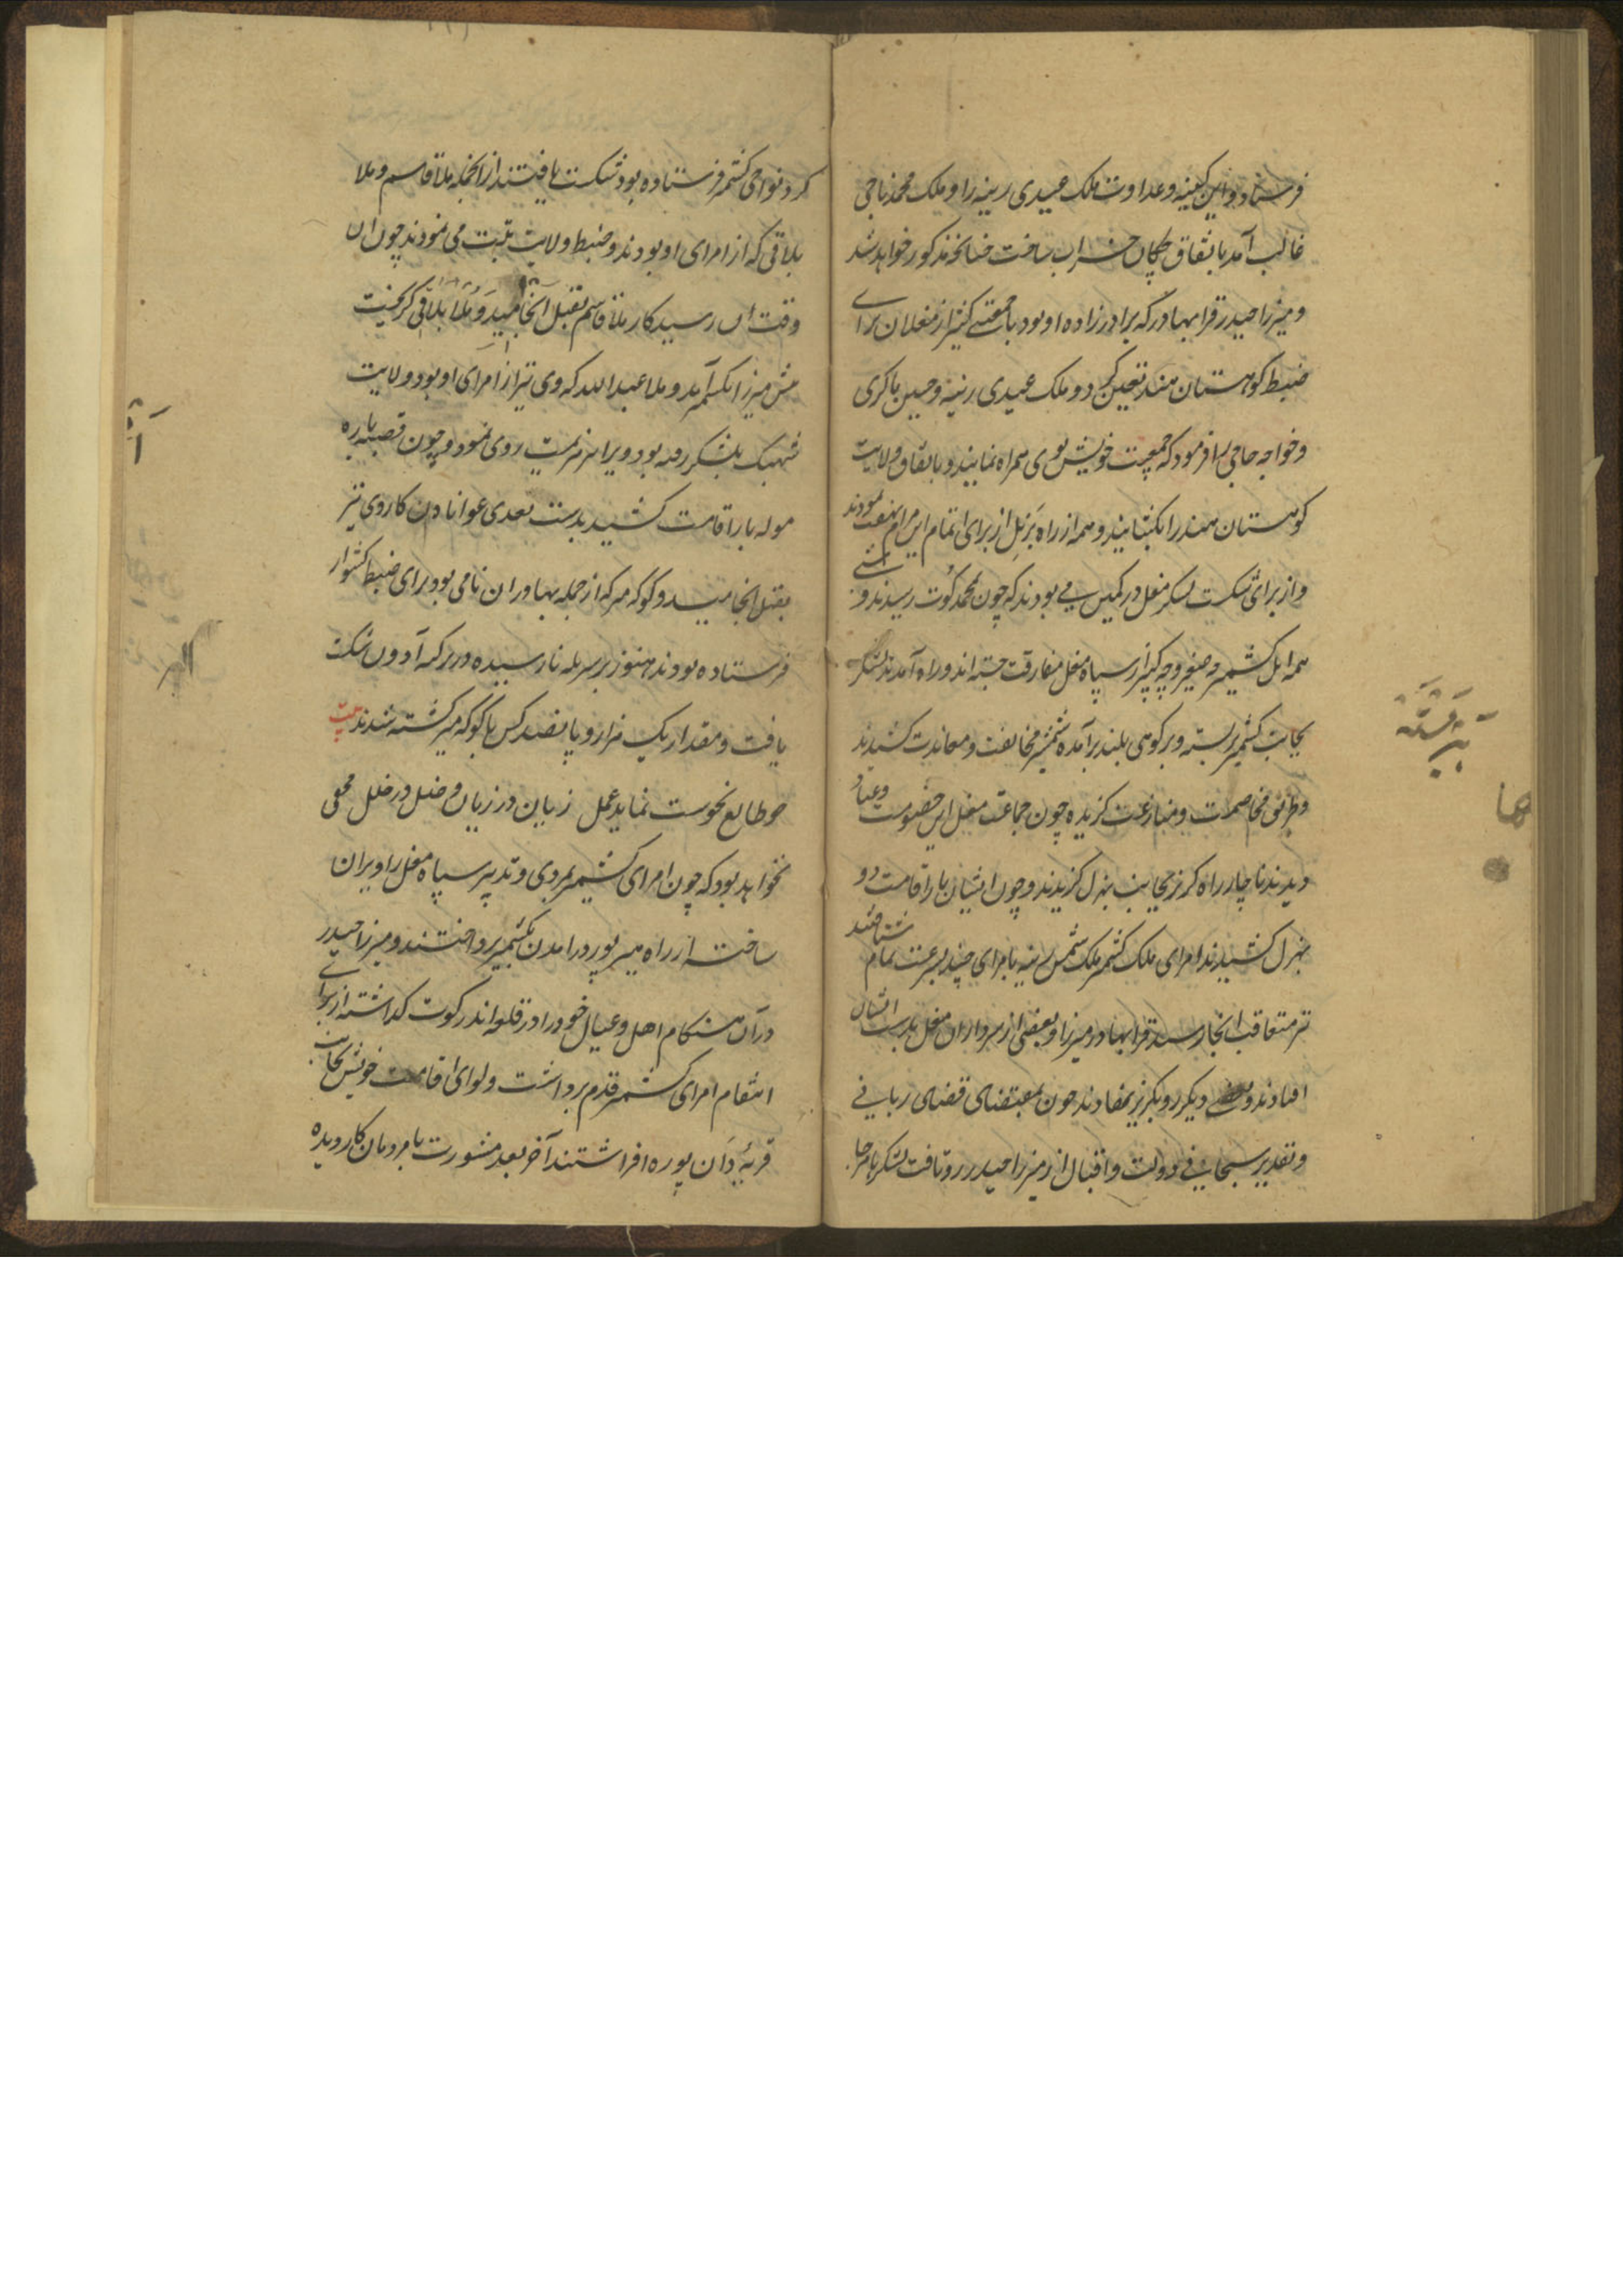 فرستاد و این کینه و عداوت ملک عیدی رینه را و ملک محمد ناجی
غالب آمد باتفاق چکان خراب ساخت چنانچه مذکور خواهد شد
و میرزا حیدر قرا بهادر که برادرزاده او بود با جمعی کثیر از مغلان برای
ضبط کوهستان هند تعین کرد و ملک عیدی رینه و حسین ماکری
و خواجه حاجی را فرمود که جمعیت خویش بوی همراه نمایند و باتفاق ولایت
کوهستان هند را بکشایند و همه از راه برنل از برای اتمام این مرام نهضت نمودند
و از برای شکست لشکر مغل در کمین می بودند که چون محمد کوت رسیدند و
همه اهل کشمیر چه صغیر و چه کبیر از سپاه مغل مفارقت جسته اند و راه آمدند لشکر
بجانب کشمیر بسته و بر کوهی بلند برآمده شمشیر مخالفت و معاندت کشیدند
و طریق مخاصمت و منازعت گزیده چون جماعت مغل این خصومت و عناد
دیدند ناچار راه گریز بجانب بهرل گزیدند و چون ایشان بار اقامت در
بهرل کشیدند امرای ملک کشمیر ملک شمس رینه با امرای چند بسرعت تمام شتافتند
متعاقب انجا رسید قرا بهادر میرزا و بعضی از سرداران مغل بدست ایشان
افتادند و بعضی دیگر رو بگریز نهادند چون بمقتضای قضای ربانی
و تقدیر سبحانی دولت و اقبال از میرزا حیدر رو تافت لشکر ها هر جا
پرشته
ها
کرد و نواحی کشمیر فرستاده بود شکست یافتند از انجمله ملا قاسم و ملا
بلاقی که از امرای او بودند و ضبط ولایت تبت می نمودند چون ان
وقت ان رسید کار ملا قاسم بقتل انجامید و ملا بلاقی گریخت
پیش میرزا آمد و ملا عبدالله که وی نیز از امرای او بود و ولایت
بلشکر رفته بود ویرا نیز هزیمت روی نمود و چون قصبه باره
موله بار اقامت کشید بدست تعدی عوانان کار وی نیز
بقتل انجامید و کوکه میر که از جمله بهادران نامی بود برای ضبط کشوار
فرستاده بودند هنوز بر سر پله نا رسیده در شکست
یافت و مقدار یک هزار و پانصد کس با کوکه میر کشته شدند بیت
چو طالع نحوست نماید عمل زیان در زیان و خلل در خلل مخفی
نخواهد بود که چون امرای کشمیر بمردی و تدبیر سپاه مغل را ویران
ساخته از راه هیرپور درامدن بکشمیر پرداختند و میرزا حیدر
در آن هنگام اهل و عیال خود را در قلعه اندرکوت گذاشته از برای
انتقام امرای کشمیر قدم برداشت و لوای اقامت خویش بجانب
قریه دان پوره افراشتند آخر بعد مشورت با مردمان کار دیده